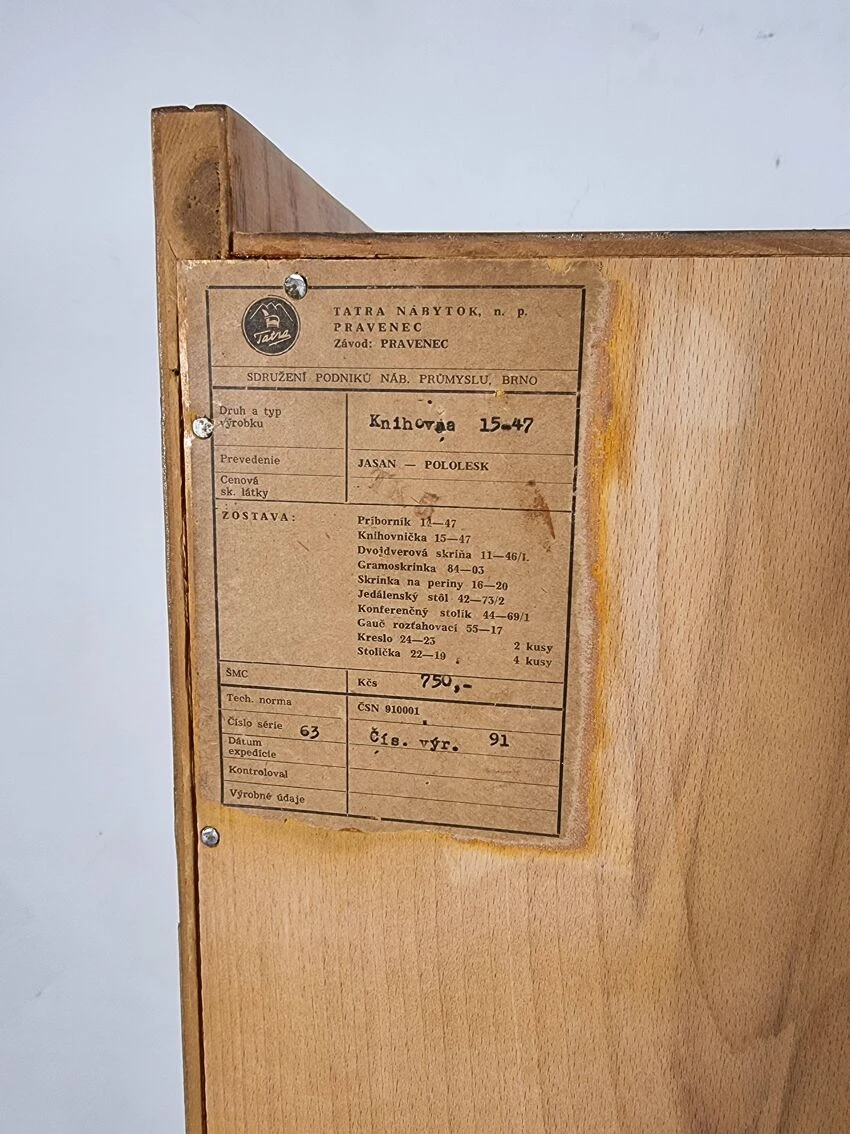 Tatra
TATRA NÁBYTOK, n. p.
PRAVENEC
Závod: PRAVENEC
SDRUŽENÍ PODNIKŮ NÁB. PRŮMYSLU, BRNO
Druh a typ
výrobku
Knihovna 15-47
Prevedenie
JASAN — POLOLESK
Cenová
sk. látky
ZOSTAVA:
Príborník 11—47
Knihovnička 15—47
Dvojdverová skriňa 11—46/I.
Gramoskrinka 84—03
Skrinka na periny 16—20
Jedálenský stôl 42—73/2
Konferenčný stolík 44—69/1
Gauč rozťahovací 55—17
Kreslo 24—23 2 kusy
Stolička 22—19 4 kusy
ŠMC
Kčs 750,-
Tech. norma
ČSN 910001
Číslo série 63
Čís. výr. 91
Dátum
expedície
Kontroloval
Výrobné údaje